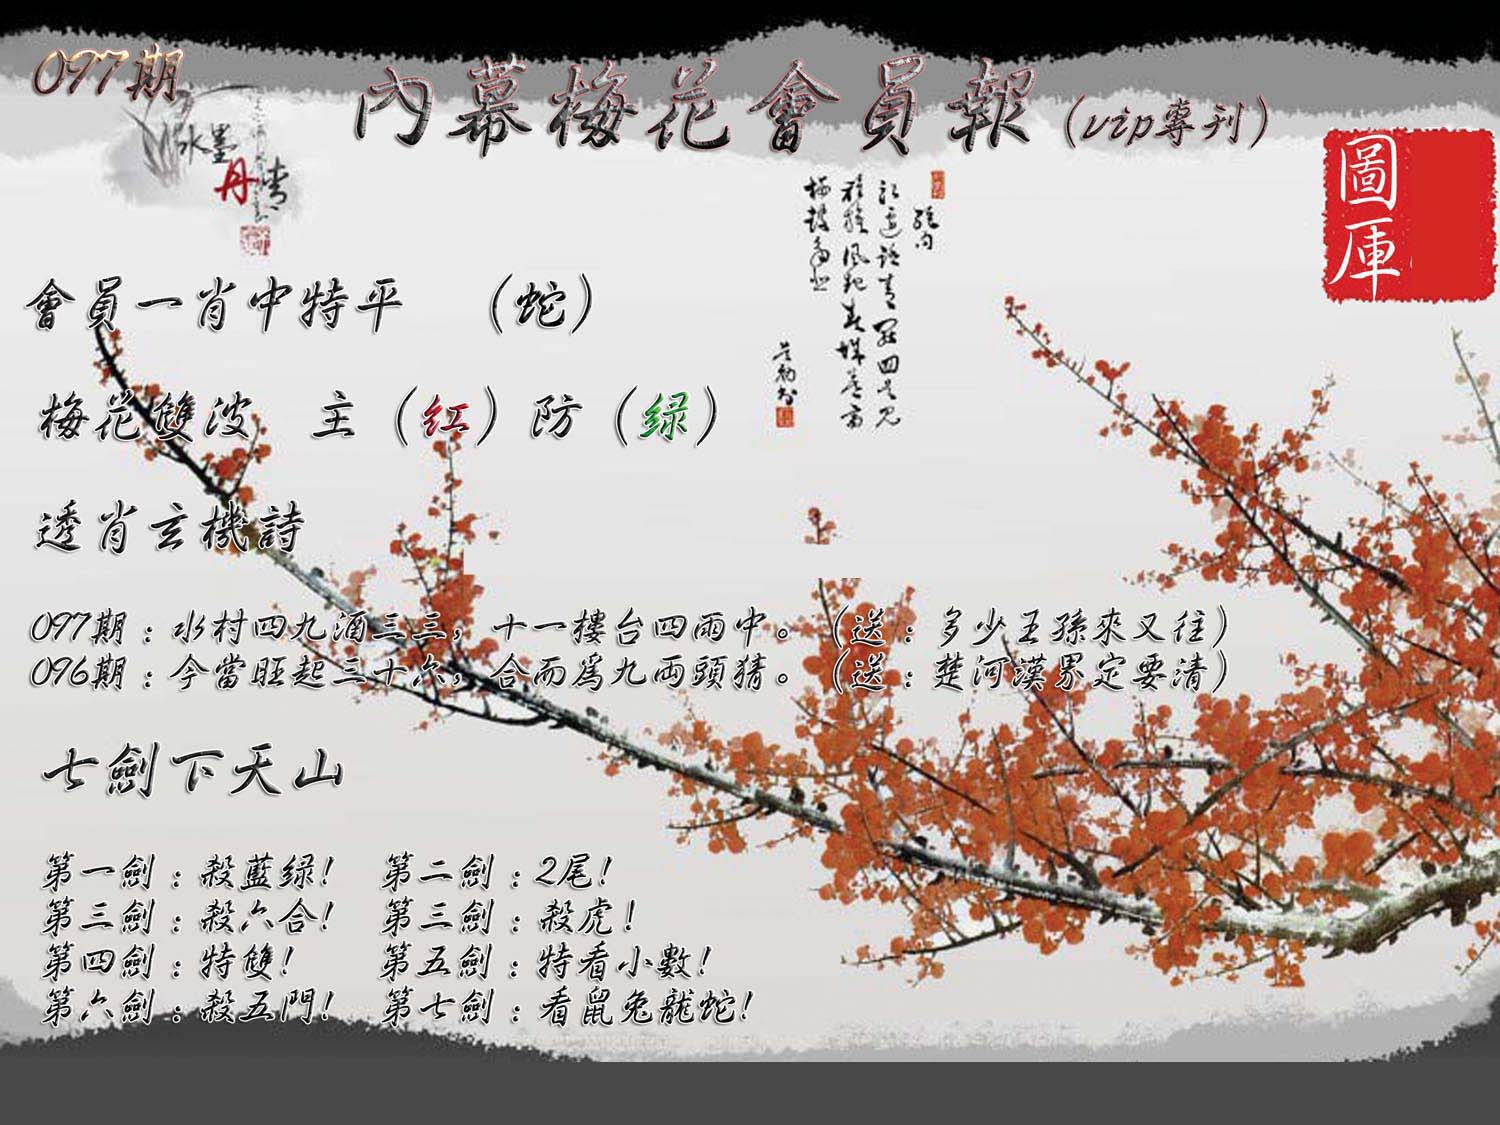 097期
內幕梅花會員報（vip專刊）
水墨
丹青
圖庫
會員一肖中特平　（蛇）
梅花雙波　主（红）防（绿）
透肖玄機詩
097期：水村四九酒三三，十一樓台四雨中。（送：多少王孫來又往）
096期：今當旺起三十六，合而為九兩頭猜。（送：楚河漢界定要清）
七劍下天山
第一劍：殺藍绿！　第二劍：2尾！
第三劍：殺六合！　第三劍：殺虎！
第四劍：特雙！　第五劍：特看小數！
第六劍：殺五門！　第七劍：看鼠兔龍蛇！